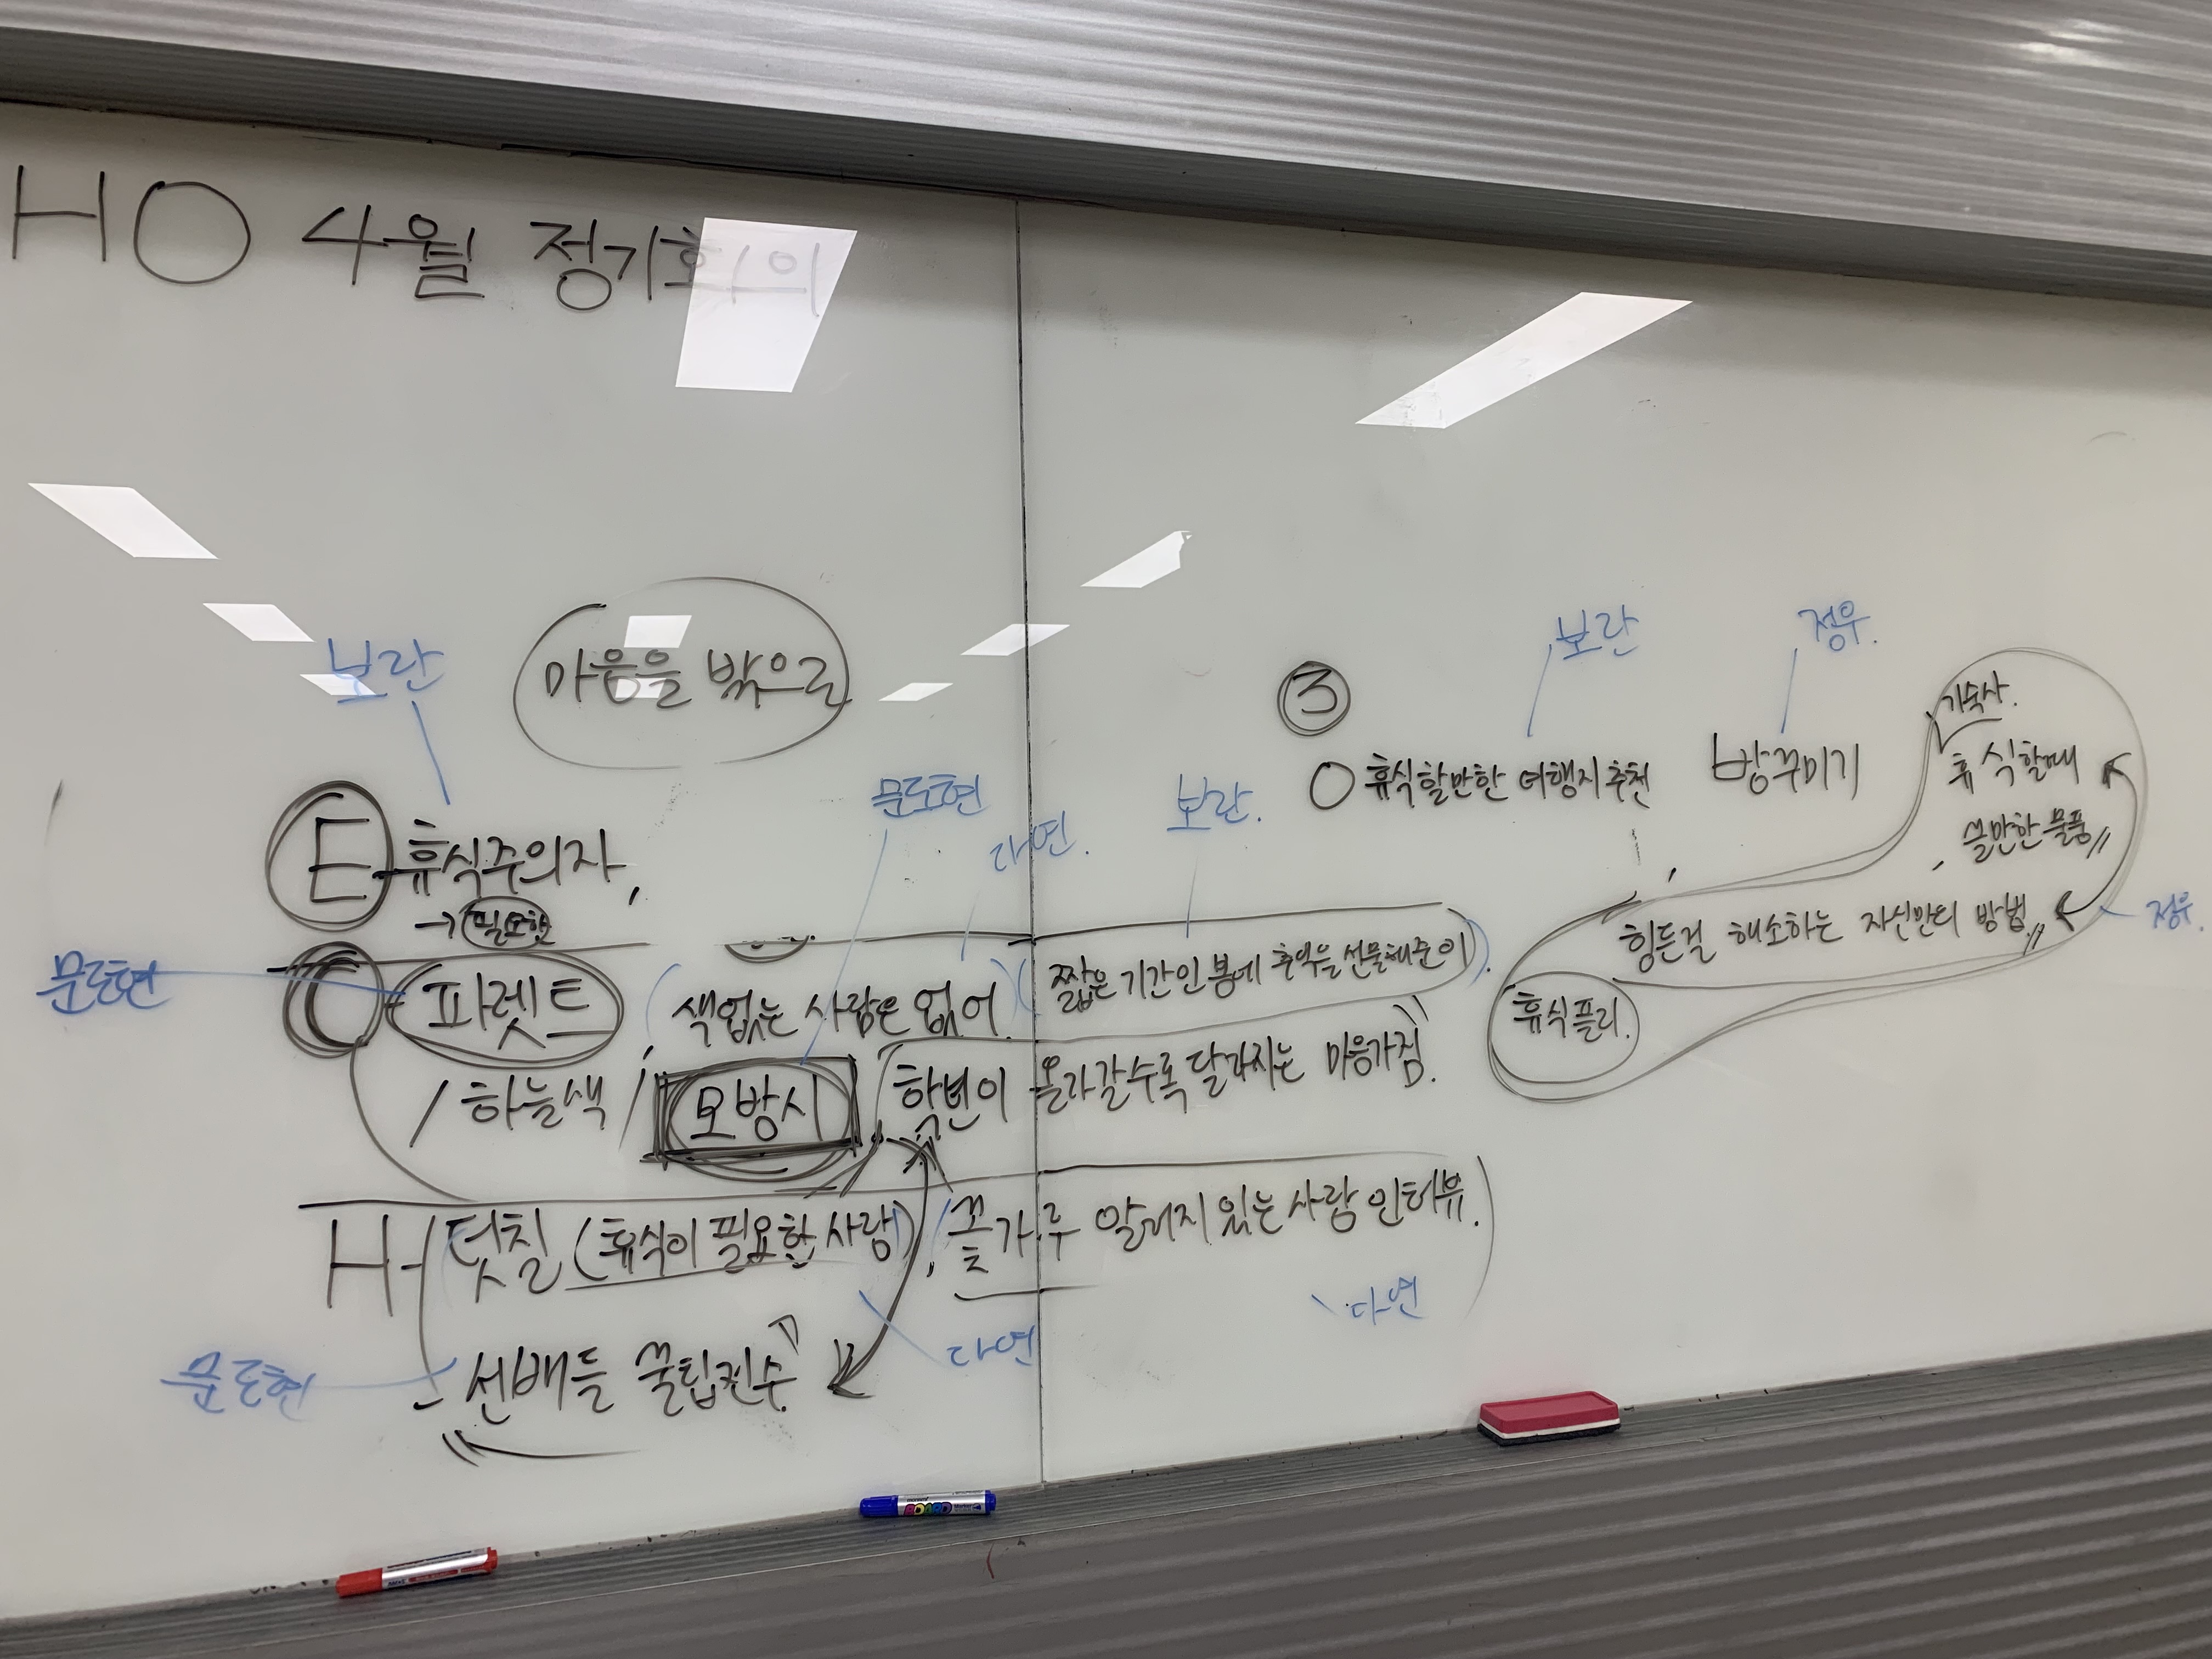 HO 4월 정기회의
마음을 밖으로
보란
E 휴식주의자,
→ 필요한
문도현
C 파렛트
문도현
다연.
보란.
색없는 사람은 없어
짧은 기간인 봄에 추억을 선물해준 이
/ 하늘색 / 모방시
학년이 올라갈수록 달라지는 마음가짐.
H - 덧칠 (휴식이 필요한 사람), 꽃가루 알러지 있는 사람 인터뷰.
다연
다연
문도현
- 선배들 꿀팁전수
③
보란
정우.
O 휴식할만한 여행지 추천
방꾸미기
기숙사.
휴식할때
쓸만한 물품
힘든걸 해소하는 자신만의 방법
정우.
휴식플리.